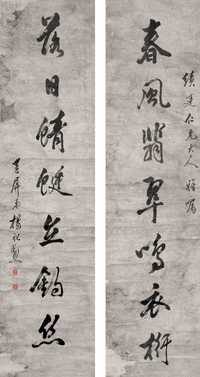 仁兄大人雅屬
春風翡翠鳴衣桁
落日蜻蜓立釣絲
屏弟楊